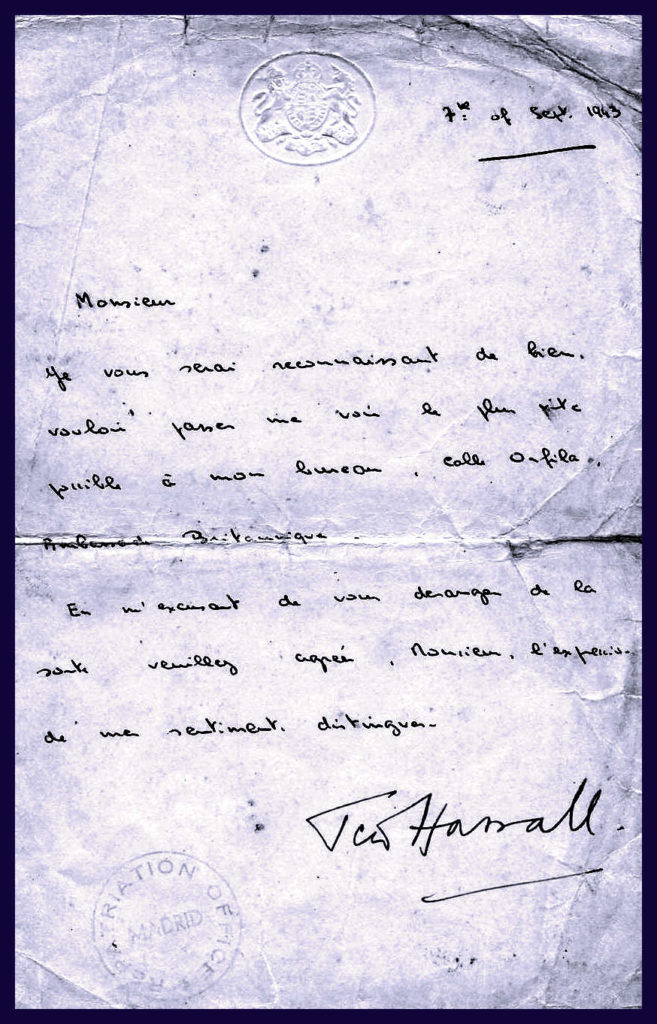 7th of Sept. 1943
Monsieur
Je vous serai reconnaissant de bien
vouloir passer me voir le plus vite
possible à mon bureau, calle Orfila,
Ambassade Britannique.
En m'excusant de vous deranger de la
sorte veuillez agréer, Monsieur, l'expression
de mes sentiments distingues.
Hassall
REPATRIATION OFFICE
MADRID